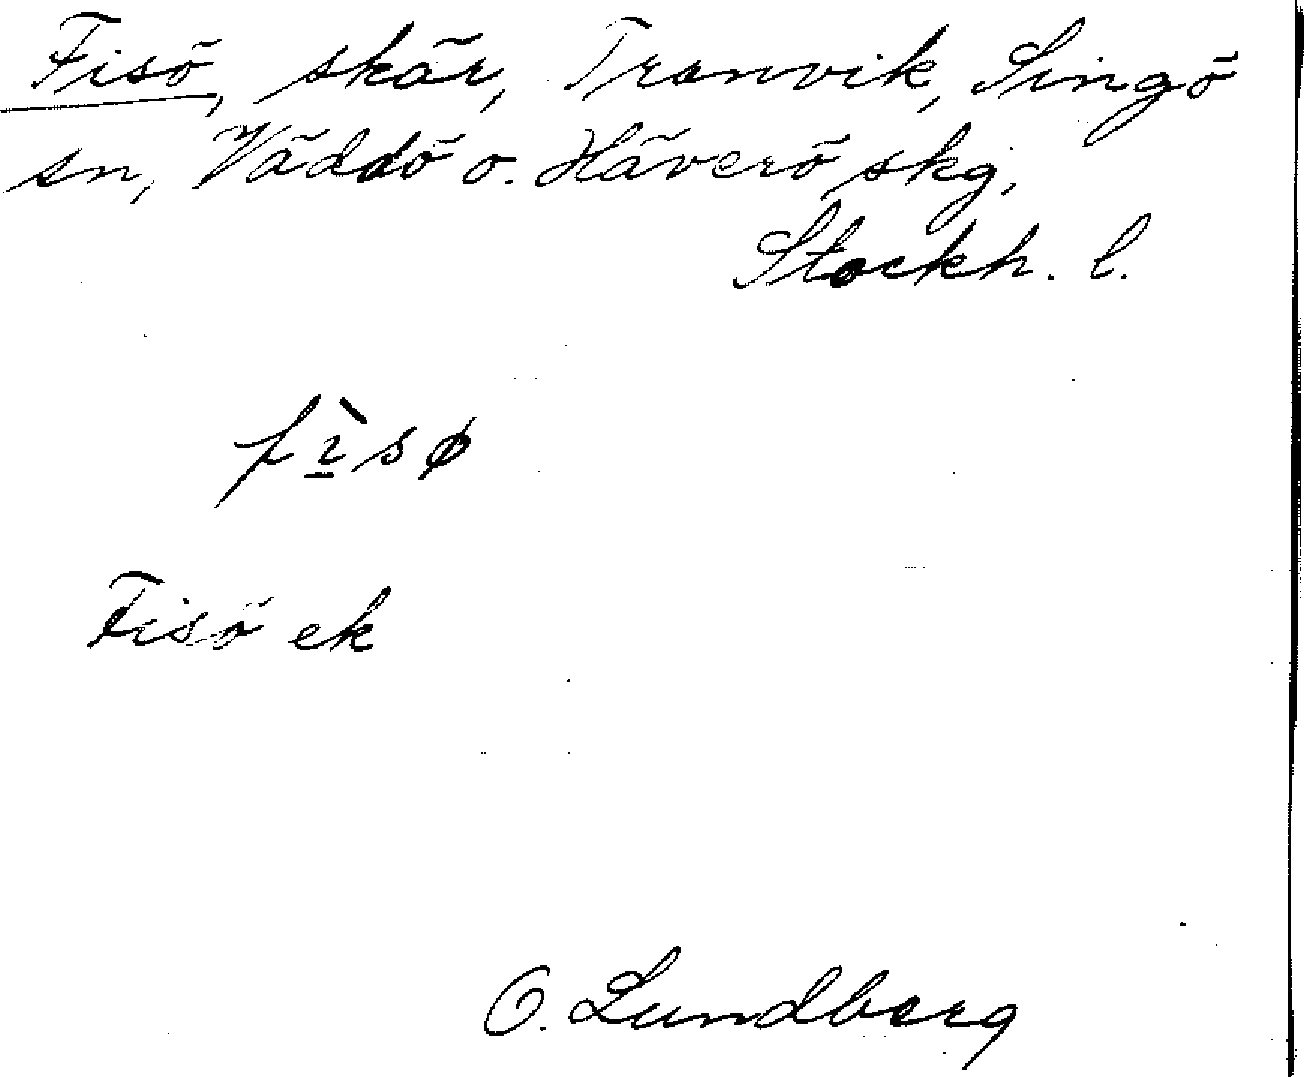 Fisö, skär, Tranvik, Singö
sn, Väddö o. Häverö skg,
Stockh. l.
fı̱̀sø
Fisö ek
O. Lundberg